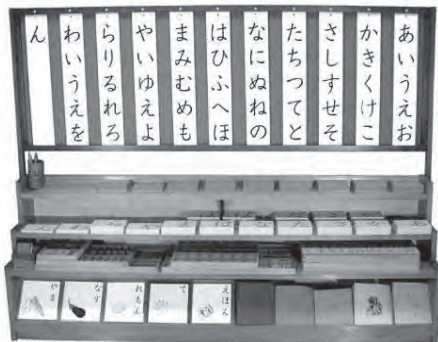 あいうえお
かきくけこ
さしすせそ
たちつてと
なにぬねの
はひふへほ
まみむめも
やいゆえよ
らりるれろ
わいうえを
ん
えほん
て
れもん
なす
やま